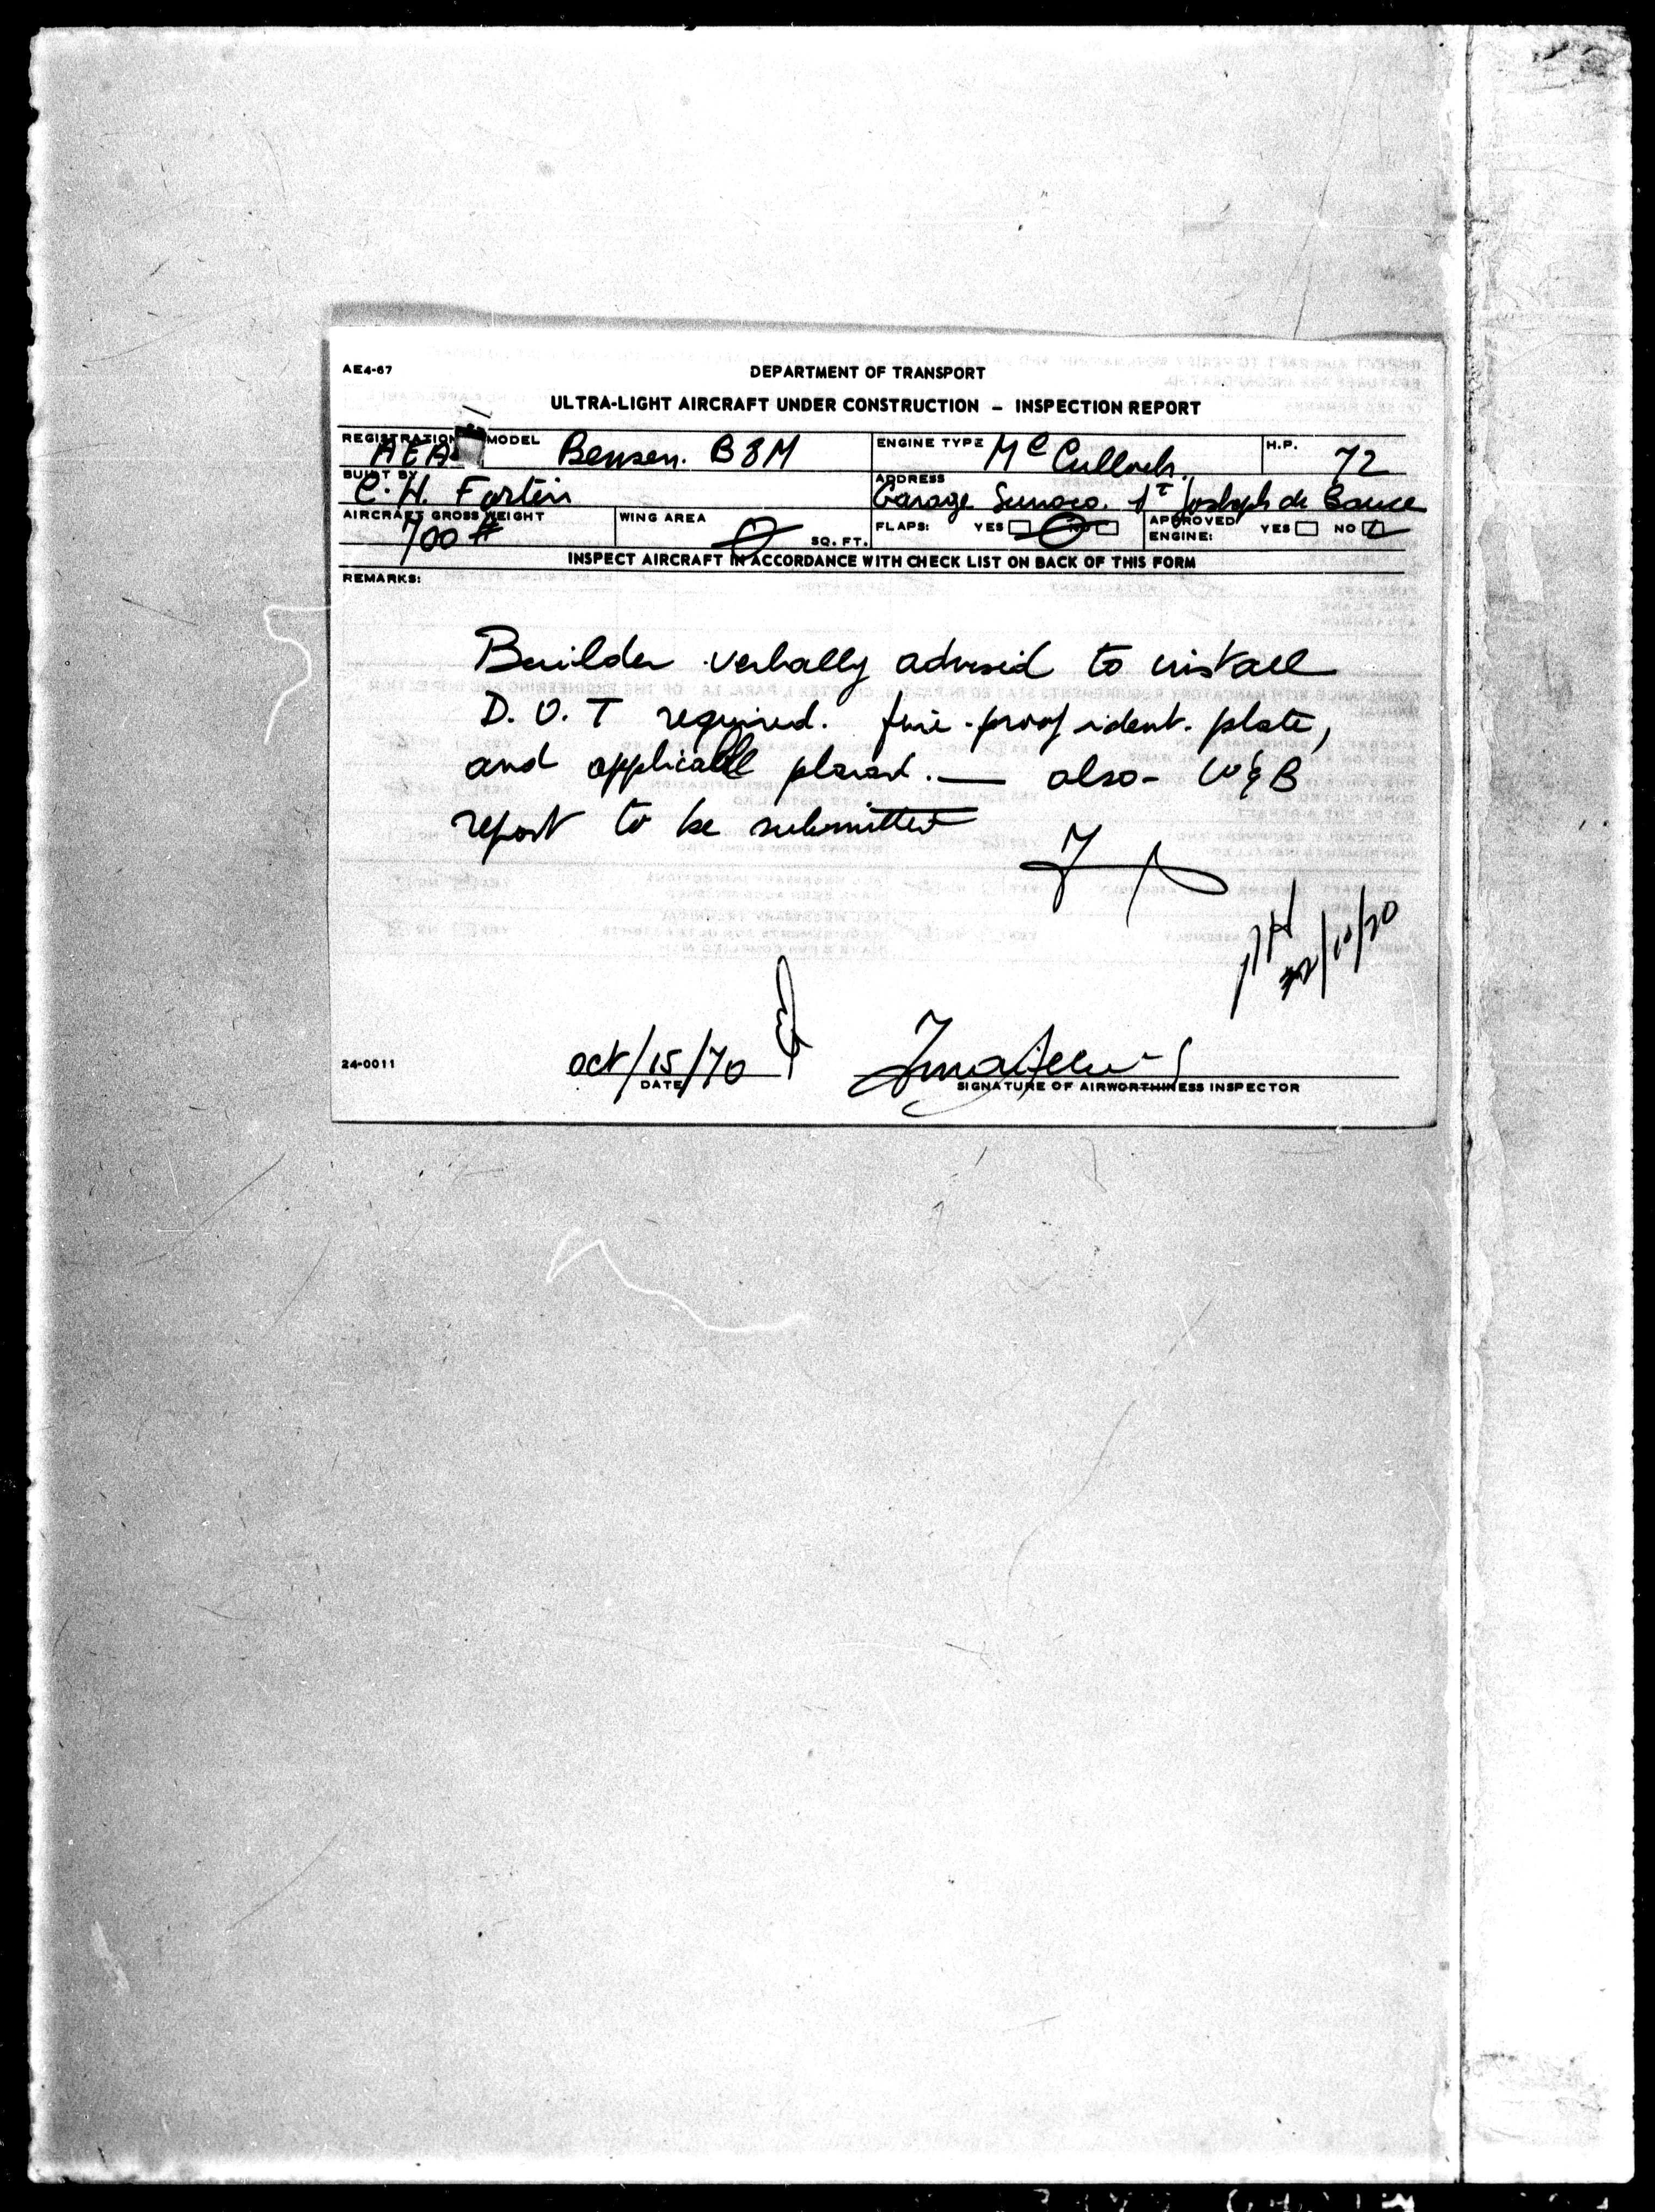 AE4-67
DEPARTMENT OF TRANSPORT
ULTRA-LIGHT AIRCRAFT UNDER CONSTRUCTION – INSPECTION REPORT
REGISTRATION AEA MODEL Bensen. B8M ENGINE TYPE Mc Culloch. H.P. 72
BUILT BY C.H. Fortin ADDRESS Garage Sunoco. St Joseph de Bauce
AIRCRAFT GROSS WEIGHT 700 # WING AREA SQ. FT. FLAPS: YES NO APPROVED ENGINE: YES NO
INSPECT AIRCRAFT IN ACCORDANCE WITH CHECK LIST ON BACK OF THIS FORM
REMARKS:
Builder verbally advised to install
D.O.T required. fire-proof ident. plate,
and applicable placard. — also - W&B
report to be submitted
24-0011
oct/15/70
DATE
SIGNATURE OF AIRWORTHINESS INSPECTOR